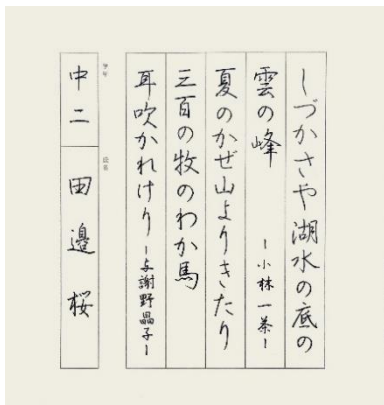 しづかさや湖水の底の
雲の峰 ー小林一茶ー
夏のかぜ山よりきたり
三百の牧のわか馬
耳吹かれけり ー与謝野晶子ー
学年
中二
氏名
田邉桜